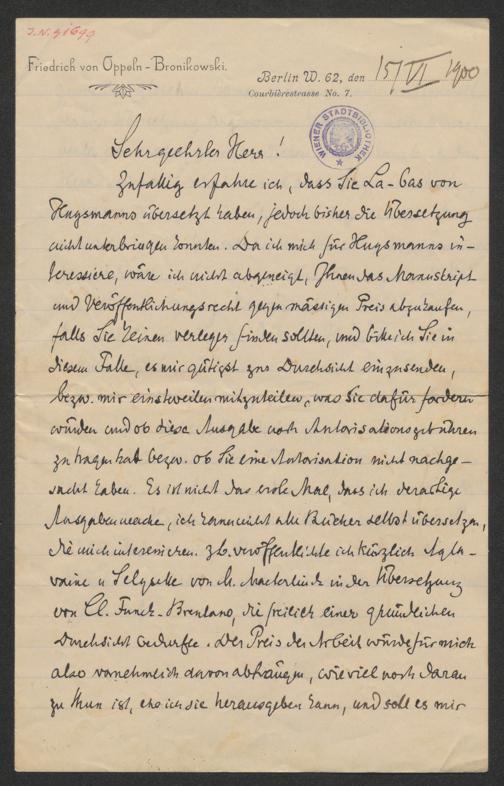 J.N. 91699
Friedrich von Oppeln-Bronikowski.
Berlin W. 62, den 15/VI 1900
Courbièrestrasse No. 7.
WIENER STADTBIBLIOTHEK
Sehrgeehrter Herr!
Zufällig erfahre ich, dass Sie La-bas von
Huysmanns übersetzt haben, jedoch bisher die Übersetzung
nicht unterbringen konnten. Da ich mich für Huysmanns in-
teressiere, wäre ich nicht abgeneigt, Ihnen das Manuskript
und Veröffentlichungsrecht gegen mässigen Preis abzukaufen,
falls Sie keinen Verleger finden sollten, und bitte ich Sie in
diesem Falle, es mir gütigst zur Durchsicht einzusenden,
bezw. mir einstweilen mitzuteilen, was Sie dafür fordern
würden und ob diese Ausgabe noch Autorisationsgebühren
zu tragen hat bezw. ob Sie eine Autorisation nicht nachge-
sucht haben. Es ist nicht das erste Mal, dass ich derartige
Ausgaben mache, ich kann nicht alle Bücher selbst übersetzen,
die mich interessieren. z.b. veröffentlichte ich kürzlich Agla-
vaine u Selysette von M. Maeterlinck in der Übersetzung
von Cl. Funck-Brentano, die freilich einer gründlichen
Durchsicht bedurfte. Der Preis der Arbeit würde für mich
also vornehmlich davon abhängen, wieviel noch daran
zu thun ist, ehe ich sie herausgeben kann, und soll es mir